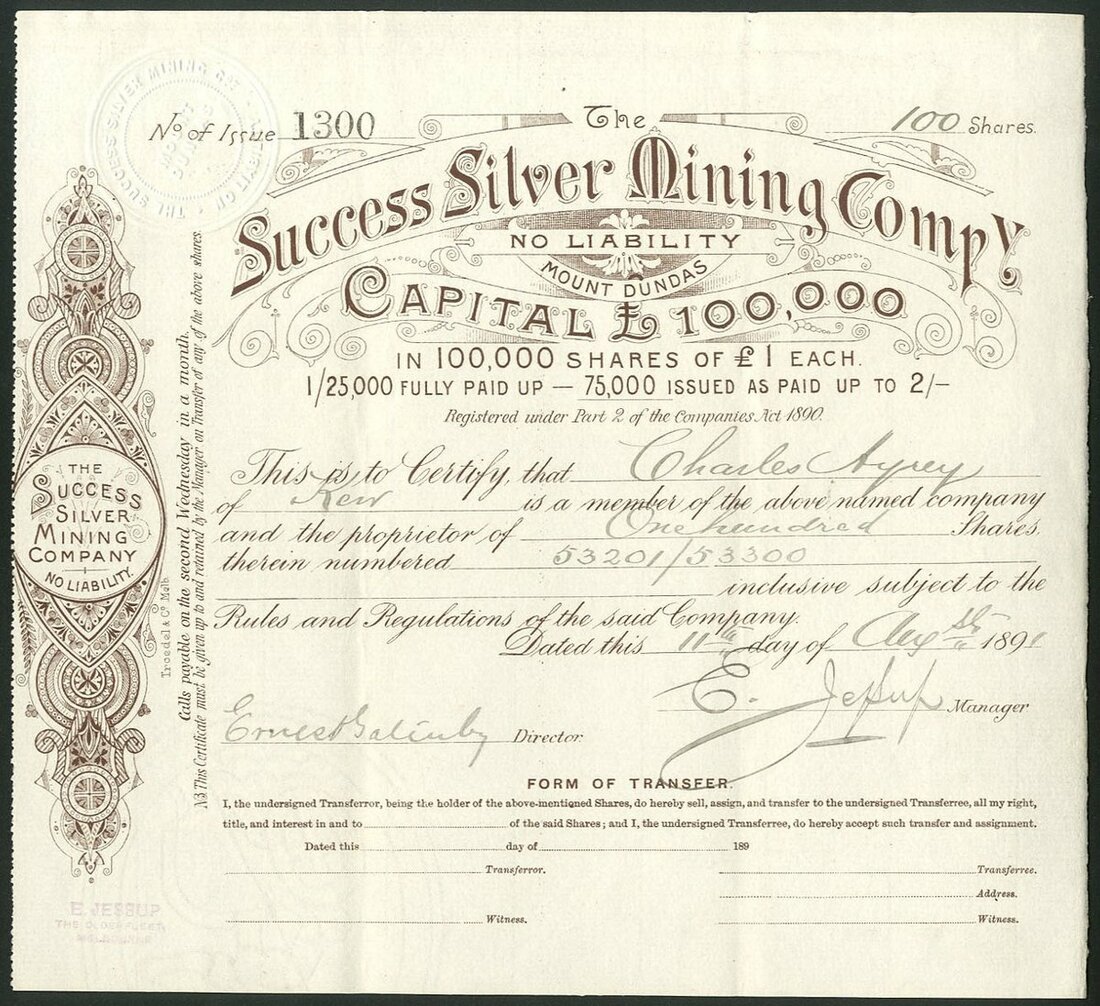 No of Issue 1300
The
100 Shares.
Success Silver Mining CompY
NO LIABILITY
MOUNT DUNDAS
CAPITAL £100,000
IN 100,000 SHARES OF £1 EACH.
1/25,000 FULLY PAID UP — 75,000 ISSUED AS PAID UP TO 2/-
Registered under Part 2 of the Companies Act 1890.
This is to Certify, that Charles Ayrey
of Kew is a member of the above named company
and the proprietor of One hundred Shares,
therein numbered 53201/53300
inclusive subject to the
Rules and Regulations of the said Company.
Dated this 11th day of 1891
E. Jessup Manager
Ernest Director
FORM OF TRANSFER.
I, the undersigned Transferror, being the holder of the above-mentioned Shares, do hereby sell, assign, and transfer to the undersigned Transferree, all my right,
title, and interest in and to of the said Shares; and I, the undersigned Transferree, do hereby accept such transfer and assignment.
Dated this day of 189
Transferror. Transferree.
Address.
Witness. Witness.
THE
SUCCESS
SILVER
MINING
COMPANY
NO LIABILITY.
Troedel & Co Melb.
Calls payable on the second Wednesday in a month.
NB This Certificate must be given up to and retained by the Manager on Transfer of any of the above shares.
E JESSUP
THE OLDERFLEET
MELBOURNE
THE SUCCESS SILVER MINING
MOUNT
DUNDAS